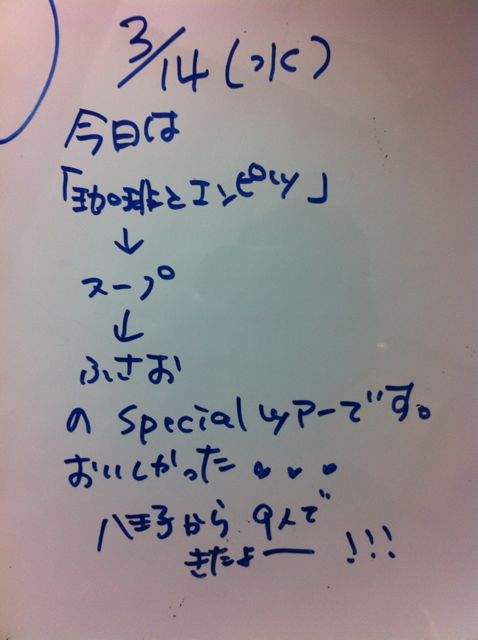 3/14(水)
今日は
「珈琲とエンピツ」
↓
スープ
↓
ふさお
の specialツアーです。
おいしかった・・・
八王子から 9人で
きたよー!!!